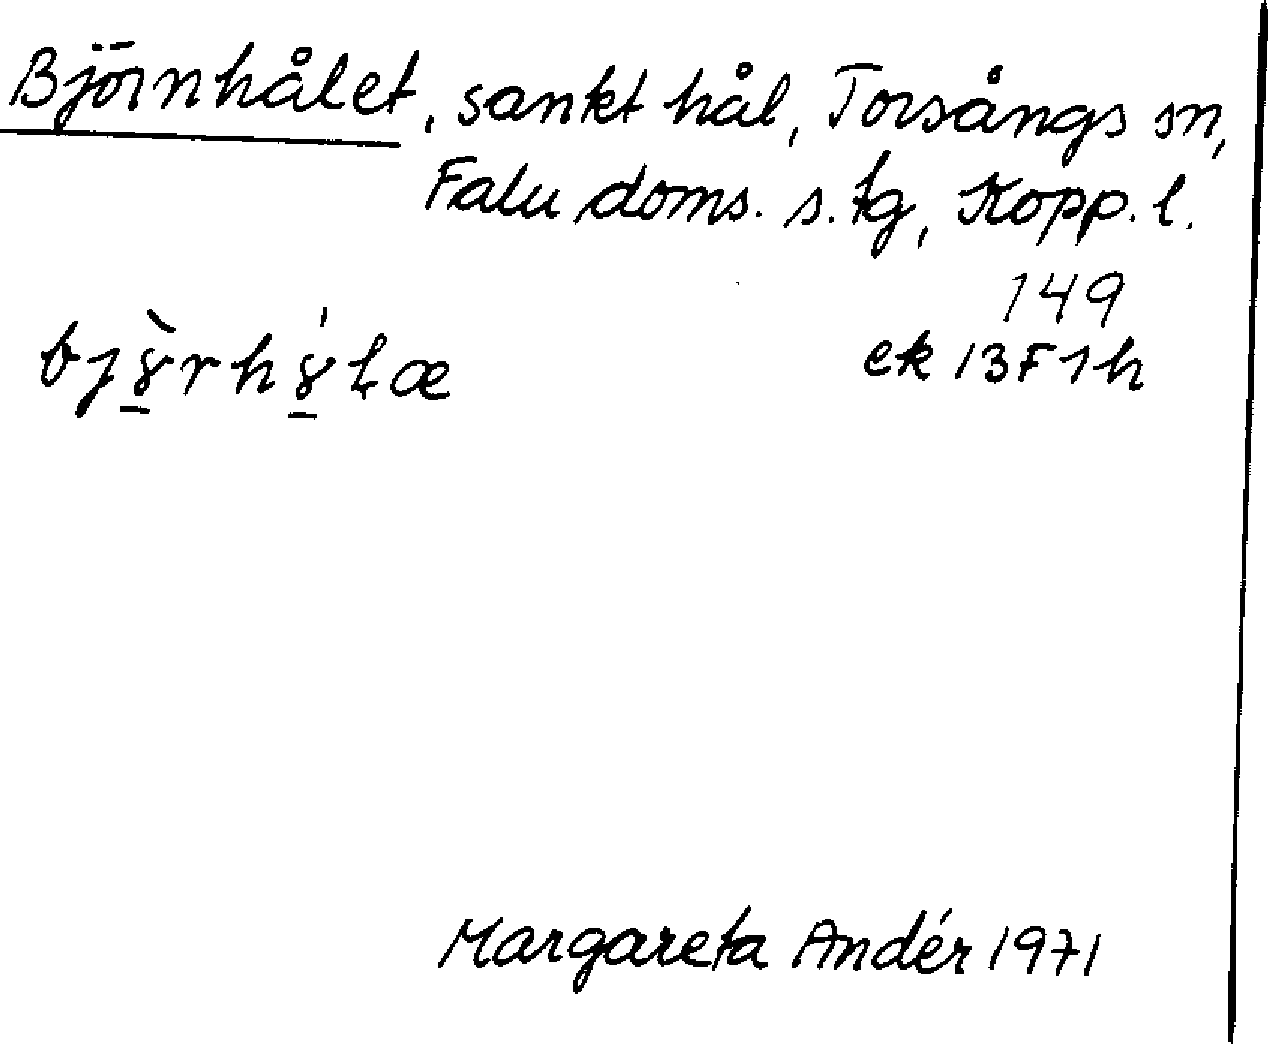 Björnhålet, sankt hål, Torsångs sn,
Falu doms. s. tg, Kopp. l.
149
ek 13F1h
Margareta Andér 1971